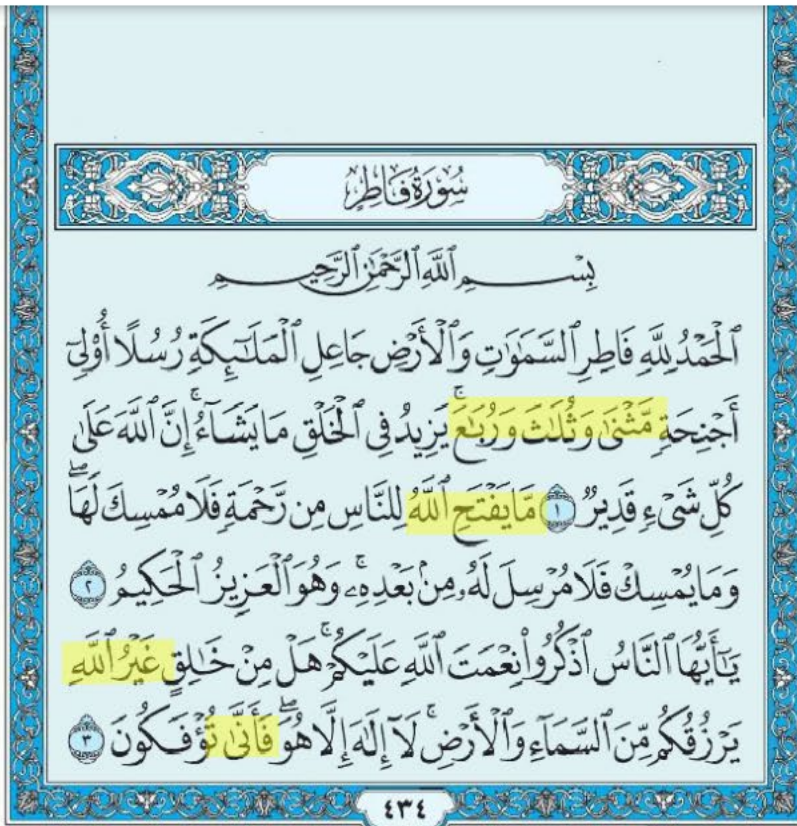 سُورَةُ فَاطِرٍ
بِسْمِ ٱللَّهِ ٱلرَّحْمَٰنِ ٱلرَّحِيمِ
ٱلْحَمْدُ لِلَّهِ فَاطِرِ ٱلسَّمَٰوَٰتِ وَٱلْأَرْضِ جَاعِلِ ٱلْمَلَٰٓئِكَةِ رُسُلًا أُو۟لِىٓ
أَجْنِحَةٍ مَّثْنَىٰ وَثُلَٰثَ وَرُبَٰعَ ۚ يَزِيدُ فِى ٱلْخَلْقِ مَا يَشَآءُ ۚ إِنَّ ٱللَّهَ عَلَىٰ
كُلِّ شَىْءٍ قَدِيرٌ ١ مَّا يَفْتَحِ ٱللَّهُ لِلنَّاسِ مِن رَّحْمَةٍ فَلَا مُمْسِكَ لَهَا ۖ
وَمَا يُمْسِكْ فَلَا مُرْسِلَ لَهُۥ مِنۢ بَعْدِهِۦ ۚ وَهُوَ ٱلْعَزِيزُ ٱلْحَكِيمُ ٢
يَٰٓأَيُّهَا ٱلنَّاسُ ٱذْكُرُوا۟ نِعْمَتَ ٱللَّهِ عَلَيْكُمْ ۚ هَلْ مِنْ خَٰلِقٍ غَيْرُ ٱللَّهِ
يَرْزُقُكُم مِّنَ ٱلسَّمَآءِ وَٱلْأَرْضِ ۚ لَآ إِلَٰهَ إِلَّا هُوَ ۖ فَأَنَّىٰ تُؤْفَكُونَ ٣
٤٣٤